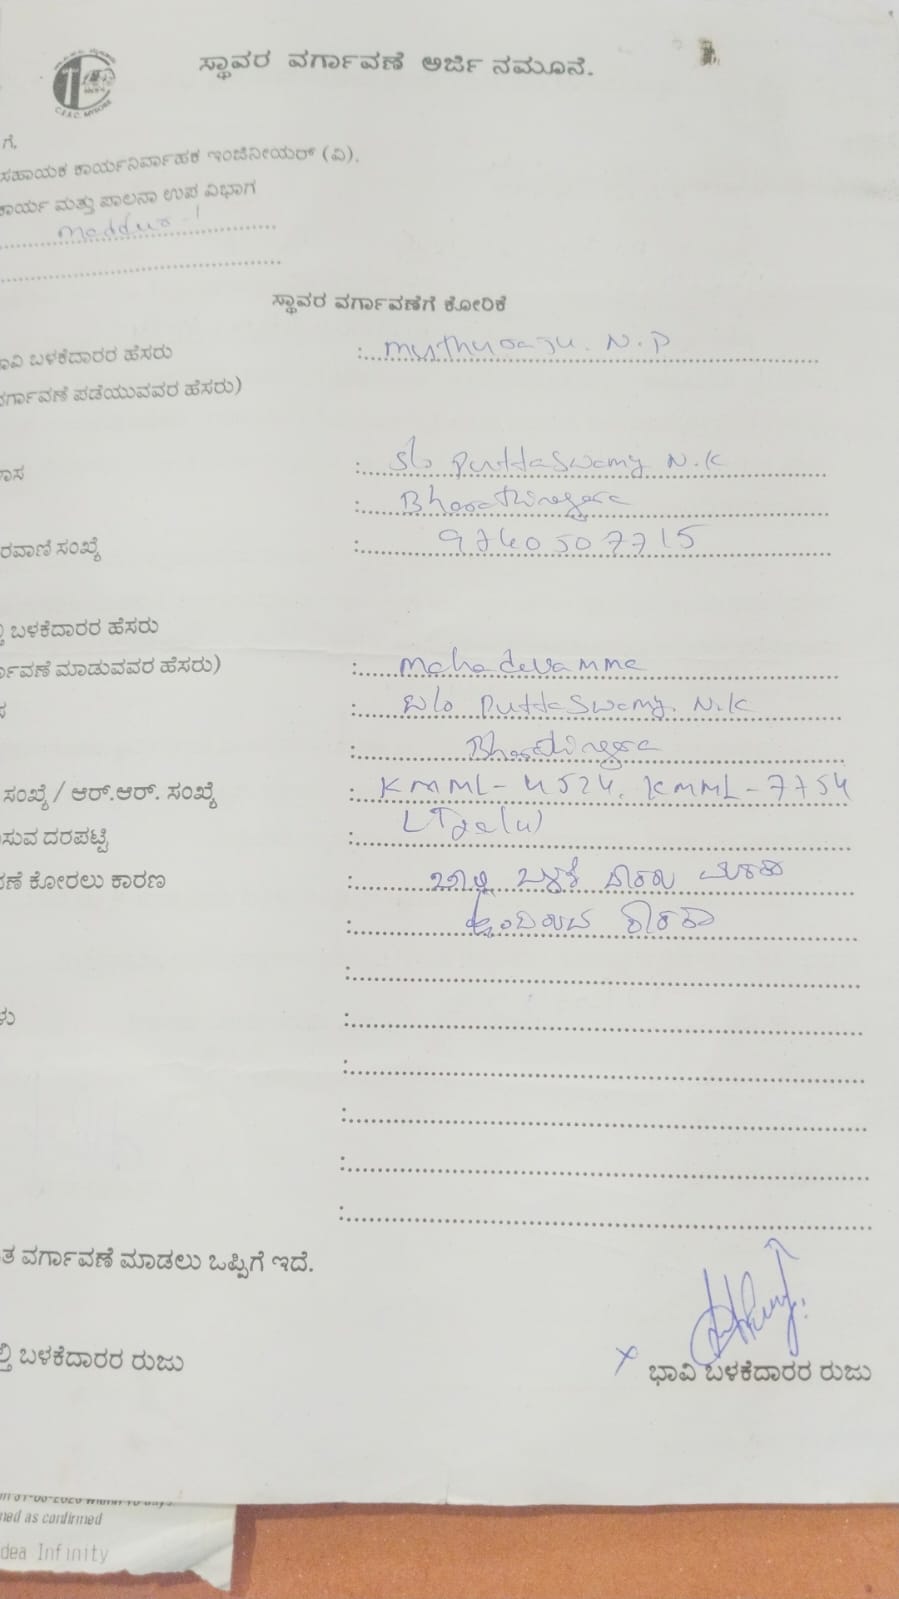 ಸ್ಥಾವರ ವರ್ಗಾವಣೆ ಅರ್ಜಿ ನಮೂನೆ.
C.E.S.C. MYSORE
ಗೆ,
ಸಹಾಯಕ ಕಾರ್ಯನಿರ್ವಾಹಕ ಇಂಜಿನೀಯರ್ (ವಿ),
ಕಾರ್ಯ ಮತ್ತು ಪಾಲನಾ ಉಪ ವಿಭಾಗ
Maddur-1
ಸ್ಥಾವರ ವರ್ಗಾವಣೆಗೆ ಕೋರಿಕೆ
ಾವಿ ಬಳಕೆದಾರರ ಹೆಸರು : Muthuraju. N.P
ವರ್ಗಾವಣೆ ಪಡೆಯುವವರ ಹೆಸರು)
ಾಸ : S/o Puttaswamy N.K
: Bharathinagara
ರವಾಣಿ ಸಂಖ್ಯೆ : 9740507715
ಬಳಕೆದಾರರ ಹೆಸರು
ರ್ಗಾವಣೆ ಮಾಡುವವರ ಹೆಸರು) : Mahadevamma
ಸ : W/o Puttaswamy. N.K
: Bharathinagara
ಸಂಖ್ಯೆ / ಆರ್.ಆರ್. ಸಂಖ್ಯೆ : KMML-4524, KMML-7754
ಸುವ ದರಪಟ್ಟಿ :
ವಣೆ ಕೋರಲು ಕಾರಣ :
:
:
ಳು :
:
:
:
:
ತ ವರ್ಗಾವಣೆ ಮಾಡಲು ಒಪ್ಪಿಗೆ ಇದೆ.
ತಿ ಬಳಕೆದಾರರ ರುಜು
x ಭಾವಿ ಬಳಕೆದಾರರ ರುಜು
ned as confirmed
dea Infinity